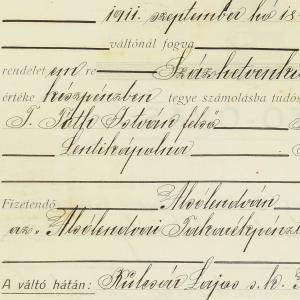 1911. szeptember hó 15
váltónál fogva
rendelet em re Százhetvenké
értéke készpénzben tegye számolásba tudós
T. Tóth István felső
Lentikápolna
Fizetendő Alsólendván
az Alsólendvai Takarékpénz
A váltó hátán: Kulcsár Lajos s. k.